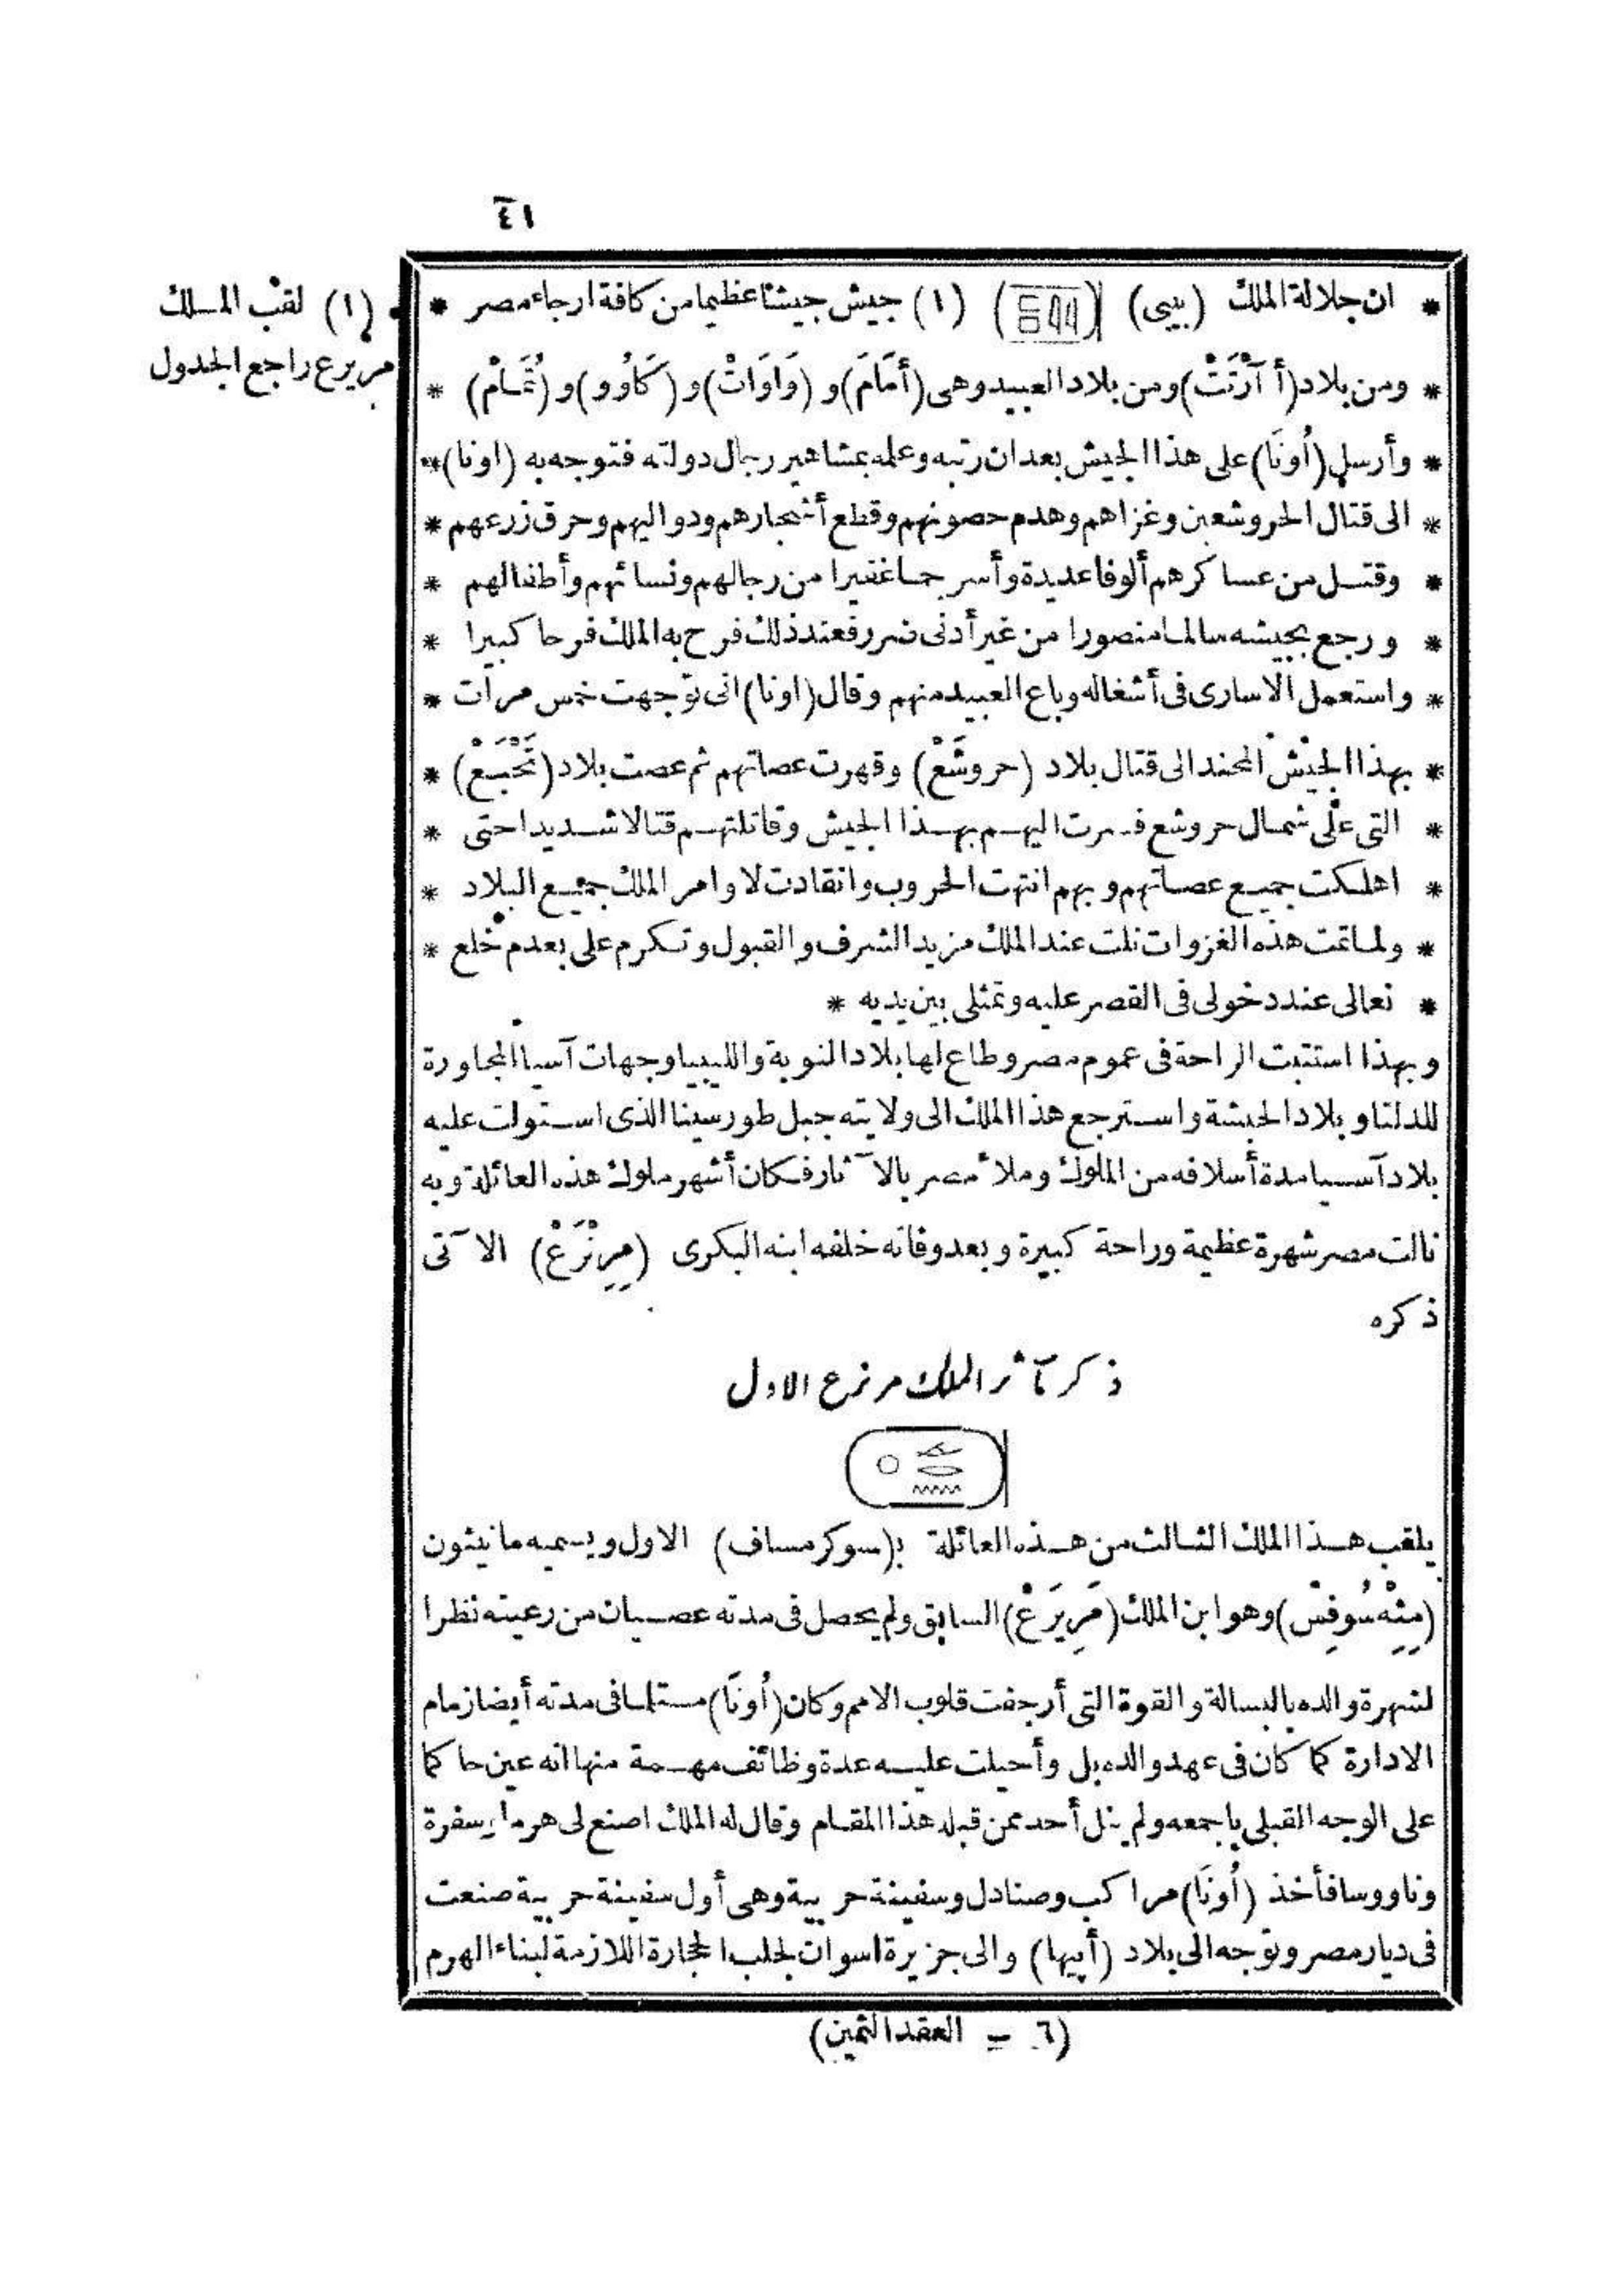 ٤١
* ان جلالة الملك (بيبى) (١) جيش جيشا عظيما من كافة ارجاء مصر *
(١) لقب الملك
مريرع راجع الجدول
* ومن بلاد (أ آرْتَتْ) ومن بلاد العبيد وهى (أمَامَ) و (وَاوَاتْ) و (كَاوُو) و (تُمَامْ) *
* وأرسل (أُونَا) على هذا الجيش بعد ان رتبه وعلمه بمشاهير رجال دولته فتوجه به (اونا) *
* الى قتال الحروشعين وغزاهم وهدم حصونهم وقطع أشجارهم ودواليهم وحرق زرعهم *
* وقتل من عساكرهم ألوفا عديدة وأسر جما غفيرا من رجالهم ونسائهم وأطفالهم *
* ورجع بجيشه سالما منصورا من غير أدنى ضرر فعند ذلك فرح به الملك فرحا كبيرا *
* واستعمل الاسارى فى أشغاله وباع العبيد منهم وقال (اونا) انى توجهت خمس مرات *
* بهذا الجيش المجند الى قتال بلاد (حروشَعْ) وقهرت عصاتهم ثم عصت بلاد (تَخْبَعْ) *
* التى على شمال حروشع فسرت اليهم بهذا الجيش وقاتلتهم قتالا شديدا حتى *
* اهلكت جميع عصاتهم وبهم انتهت الحروب وانقادت لاوامر الملك جميع البلاد *
* ولما تمت هذه الغزوات نلت عند الملك مزيد الشرف والقبول وتكرم على بعدم خلع *
* نعالى عند دخولى فى القصر عليه وتمثلى بين يديه *
وبهذا استتبت الراحة فى عموم مصر وطاع لها بلاد النوبة والليبيا وجهات آسيا المجاورة
للدلتا وبلاد الحبشة واسترجع هذا الملك الى ولايته جبل طورسينا الذى استولت عليه
بلاد آسيا مدة أسلافه من الملوك وملأ مصر بالآثار فكان أشهر ملوك هذه العائلة وبه
نالت مصر شهرة عظيمة وراحة كبيرة وبعد وفاته خلفه ابنه البكرى (مِرِنْرَعْ) الآتى
ذكره
ذكر مآثر الملك مرنرع الاول
يلقب هذا الملك الثالث من هذه العائلة بـ (سوكر مساف) الاول ويسميه مانيثون
(مِنِتْه سُوفِسْ) وهو ابن الملك (مَرِيرَعْ) السابق ولم يحصل فى مدته عصيان من رعيته نظرا
لشهرة والده بالبسالة والقوة التى أرجفت قلوب الامم وكان (أُونَا) مستلما فى مدته أيضا زمام
الادارة كما كان فى عهد والده بل وأحيلت عليه عدة وظائف مهمة منها انه عين حاكما
على الوجه القبلى باجمعه ولم ينل أحد ممن قبله هذا المقام وقال له الملك اصنع لى هرما بسفرة
وناووسا فأخذ (أُونَا) مراكب وصنادل وسفينة حربية وهى أول سفينة حربية صنعت
فى ديار مصر وتوجه الى بلاد (أبيها) والى جزيرة اسوان لجلب الحجارة اللازمة لبناء الهرم
(٦ - العقد الثمين)